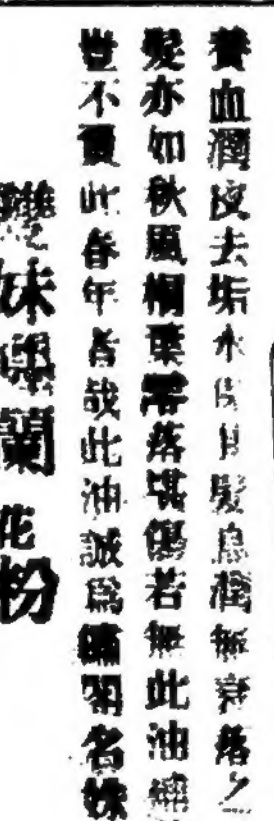 養血潤皮去垢水　　髮烏潤無衰落之
髮亦如秋風桐葉零落堪傷若無此油
豈不　此春年者哉此油誠爲　閨名姝
雙妹　蘭花粉